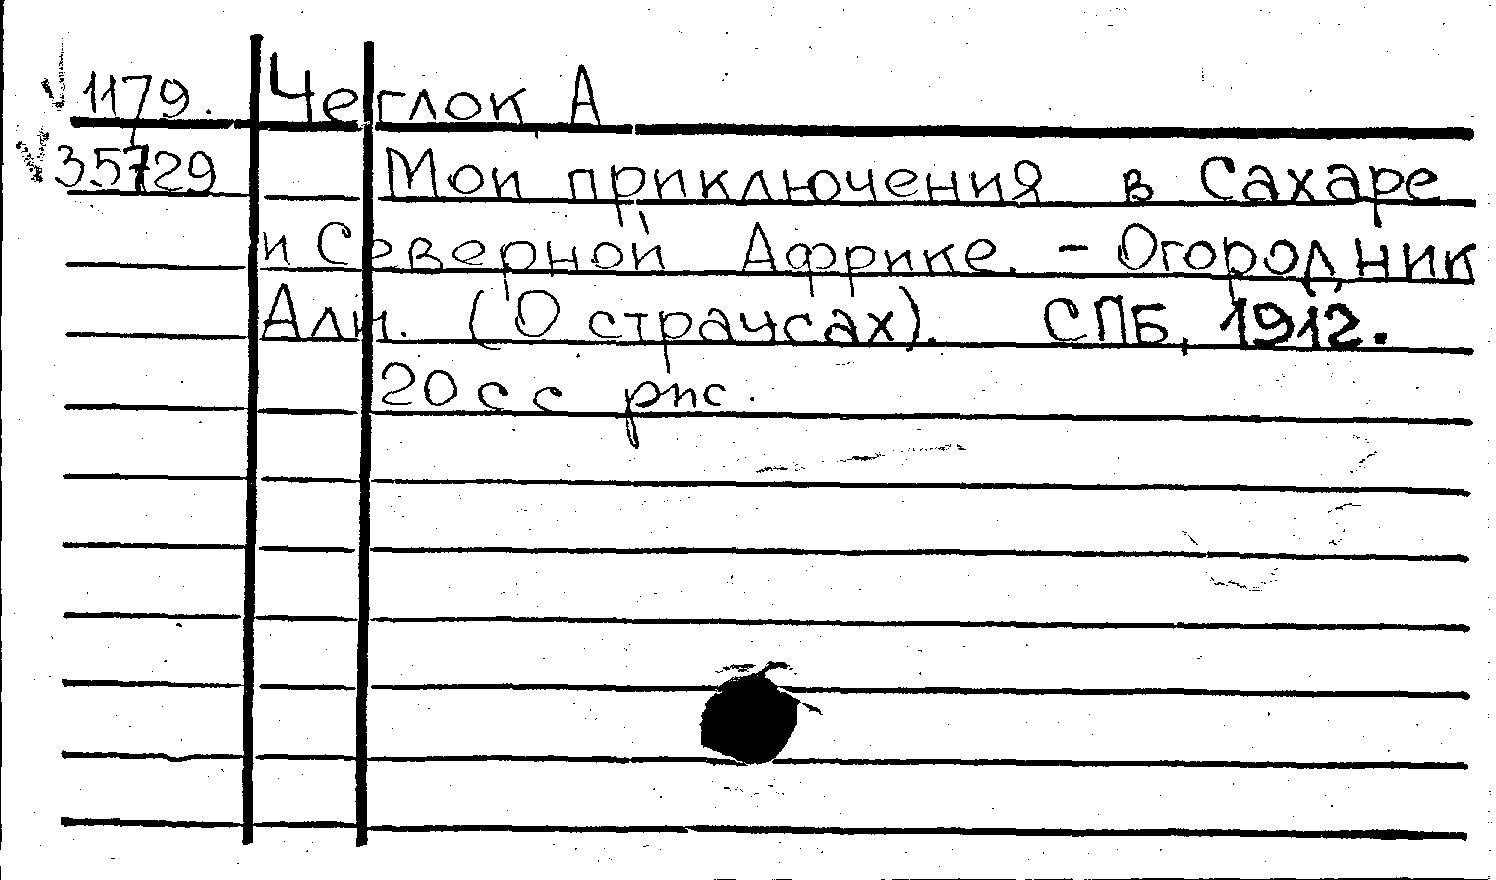 1179. Чеглок, А
35729 Мои приключения в Сахаре
и Северной Африке. - Огородник
Али. (О страусах). СПБ, 1912.
20 с с рис.